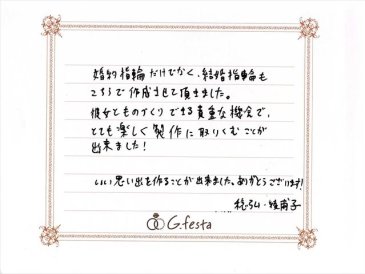 婚約指輪だけでなく、結婚指輪も
こちらで作成させて頂きました。
彼女とものづくりできる貴重な機会で、
とても楽しく製作に取りくむことが
出来ました！
いい思い出を作ることが出来ました。ありがとうございます！
G.festa